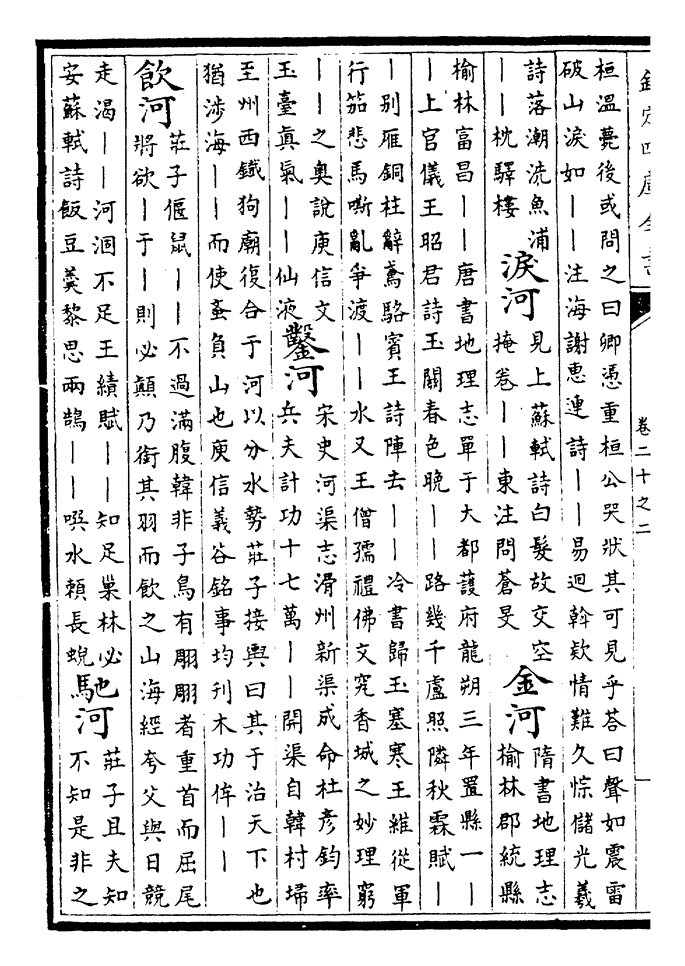 欽定四庫全書
卷二十之二
桓溫薨後或問之曰卿憑重桓公哭狀其可見乎荅曰聲如震雷
破山淚如——注海謝惠連詩——易迴斡欵情難久悰儲光羲
詩落潮洗魚浦
——枕驛樓
淚河
見上蘇軾詩白髮故交空
掩卷——東注問蒼旻
金河
隋書地理志
榆林郡統縣
榆林富昌——唐書地理志單于大都護府龍朔三年置縣一—
—上官儀王昭君詩玉關春色晚——路幾千盧照隣秋霖賦——
—别雁銅柱辭鳶駱賓王詩陣去——冷書歸玉塞寒王維從軍
行笳悲馬嘶亂爭渡——水又王僧孺禮佛文究香城之妙理窮
——之奧說庾信文
玉臺眞氣——仙液
鑿河
宋史河渠志滑州新渠成命杜彥鈞率
兵夫計功十七萬——開渠自韓村埽
至州西鐵狗廟復合于河以分水勢莊子接輿曰其于治天下也
猶涉海——而使蚉負山也庾信義谷銘事均刋木功侔——
飲河
莊子偃鼠——不過滿腹韓非子鳥有翢翢者重首而屈尾
將欲—于—則必顛乃銜其羽而飲之山海經夸父與日競
走渴——河涸不足王績賦——知足巢林必
安蘇軾詩飯豆羹黎思兩鵠——噀水賴長蜺
馳河
莊子且夫知
不知是非之